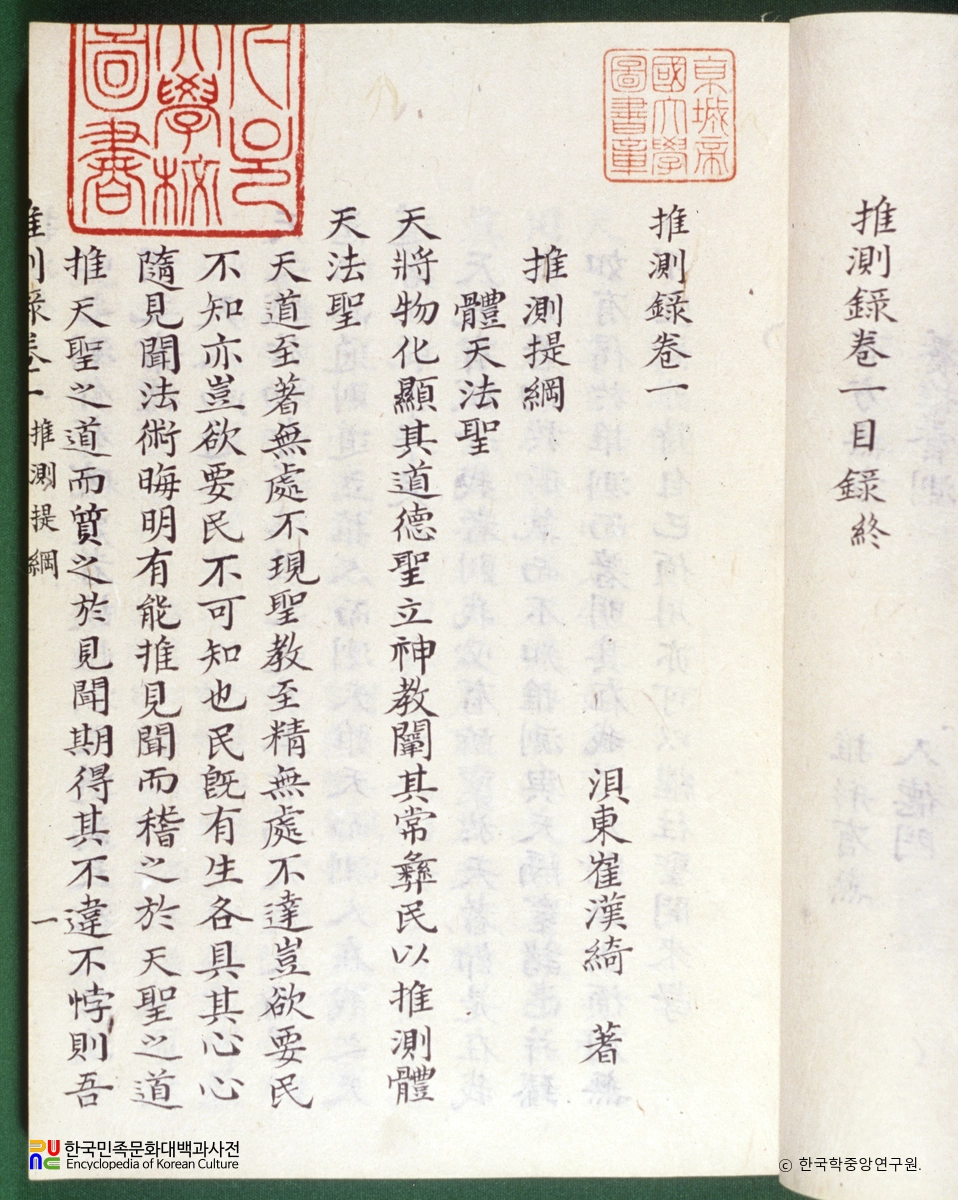 推測錄卷一目錄終
京城帝
國大學
圖書章
推測錄卷一
浿東崔漢綺 著
推測提綱
體天法聖
天將物化顯其道德聖立神敎闡其常彝民以推測體
天法聖
天道至著無處不現聖敎至精無處不達豈欲要民
不知亦豈欲要民不可知也民旣有生各具其心心
隨見聞法術晦明有能推見聞而稽之於天聖之道
推天聖之道而質之於見聞期得其不違不悖則吾
大學校
圖書
推測錄卷一 推測提綱 一
한국민족문화대백과사전
Encyclopedia of Korean Culture
© 한국학중앙연구원.